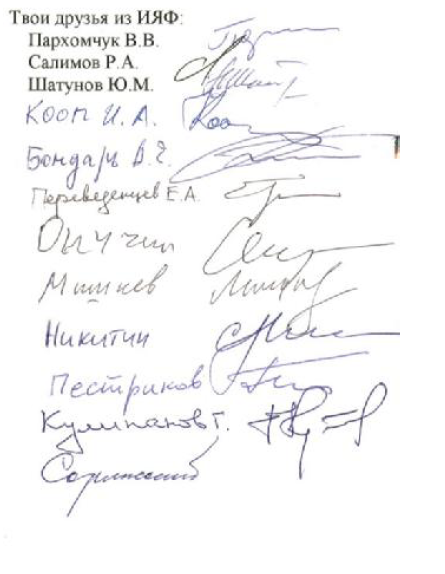 Твои друзья из ИЯФ:
Пархомчук В.В.
Салимов Р.А.
Шатунов Ю.М.
Кооп И.А.
Бондарь В.Е.
Переведенцев Е.А.
Онучин
Мишнев
Никитин
Пестриков
Кулипанов Г.